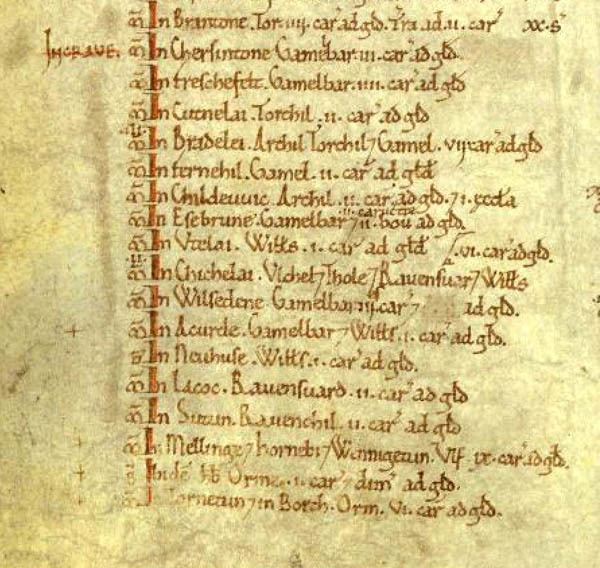 In Brantone. Tor. iiij. car̃ ad gld̃. Tr̃a ad. ii. car̃ xx. s̃
IN CRAVE. In Chersintone Gamelbar. iii. car̃ ad gld̃.
In freschefelt. Gamelbar. iiii. car̃ ad gld̃
In Cutnelai. Torchil. ii. car̃ ad gld̃
In Bradelei. Archil Torchil ⁊ Gamel. vij car̃ ad gld̃
In fernehil. Gamel. ii. car̃ ad gld̃
In Childeuuic. Archil. ii. car̃ ad gld̃. ⁊ i. æccl̃a
In Esebrune. Gamelbar ⁊ ii. bou ad gld̃.
In Vtelai. Wills. i. car̃ ad gld̃ vi. car̃ ad gld̃.
In Chichelai. Vlchel ⁊ Thole ⁊ Rauensuar ⁊ Wills
In Wilsedene. Gamelbar iij. car̃ ⁊ ad gld̃.
In Acurde. Gamelbar ⁊ Wills. i. car̃ ad gld̃.
In Neuhuse. Wills. i. car̃ ad gld̃.
In Lacoc. Rauensuard. ii. car̃ ad gld̃
In Sutun. Rauenchil. ii. car̃ ad gld̃
In Mellinge ⁊ hornebi ⁊ Wennigetun. Vlf. ix. car̃ ad gld̃.
Ibidẽ hb̃ Orme. i. car̃ ⁊ dim̃ ad gld̃.
⁊ in Borch. Orm. vi. car̃ ad gld̃.